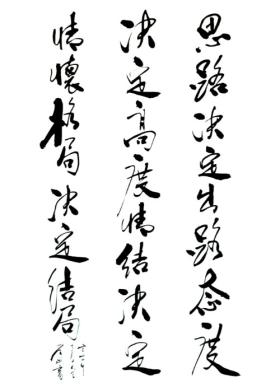 思路决定出路态度
决定高度情结决定
情懷格局决定结局